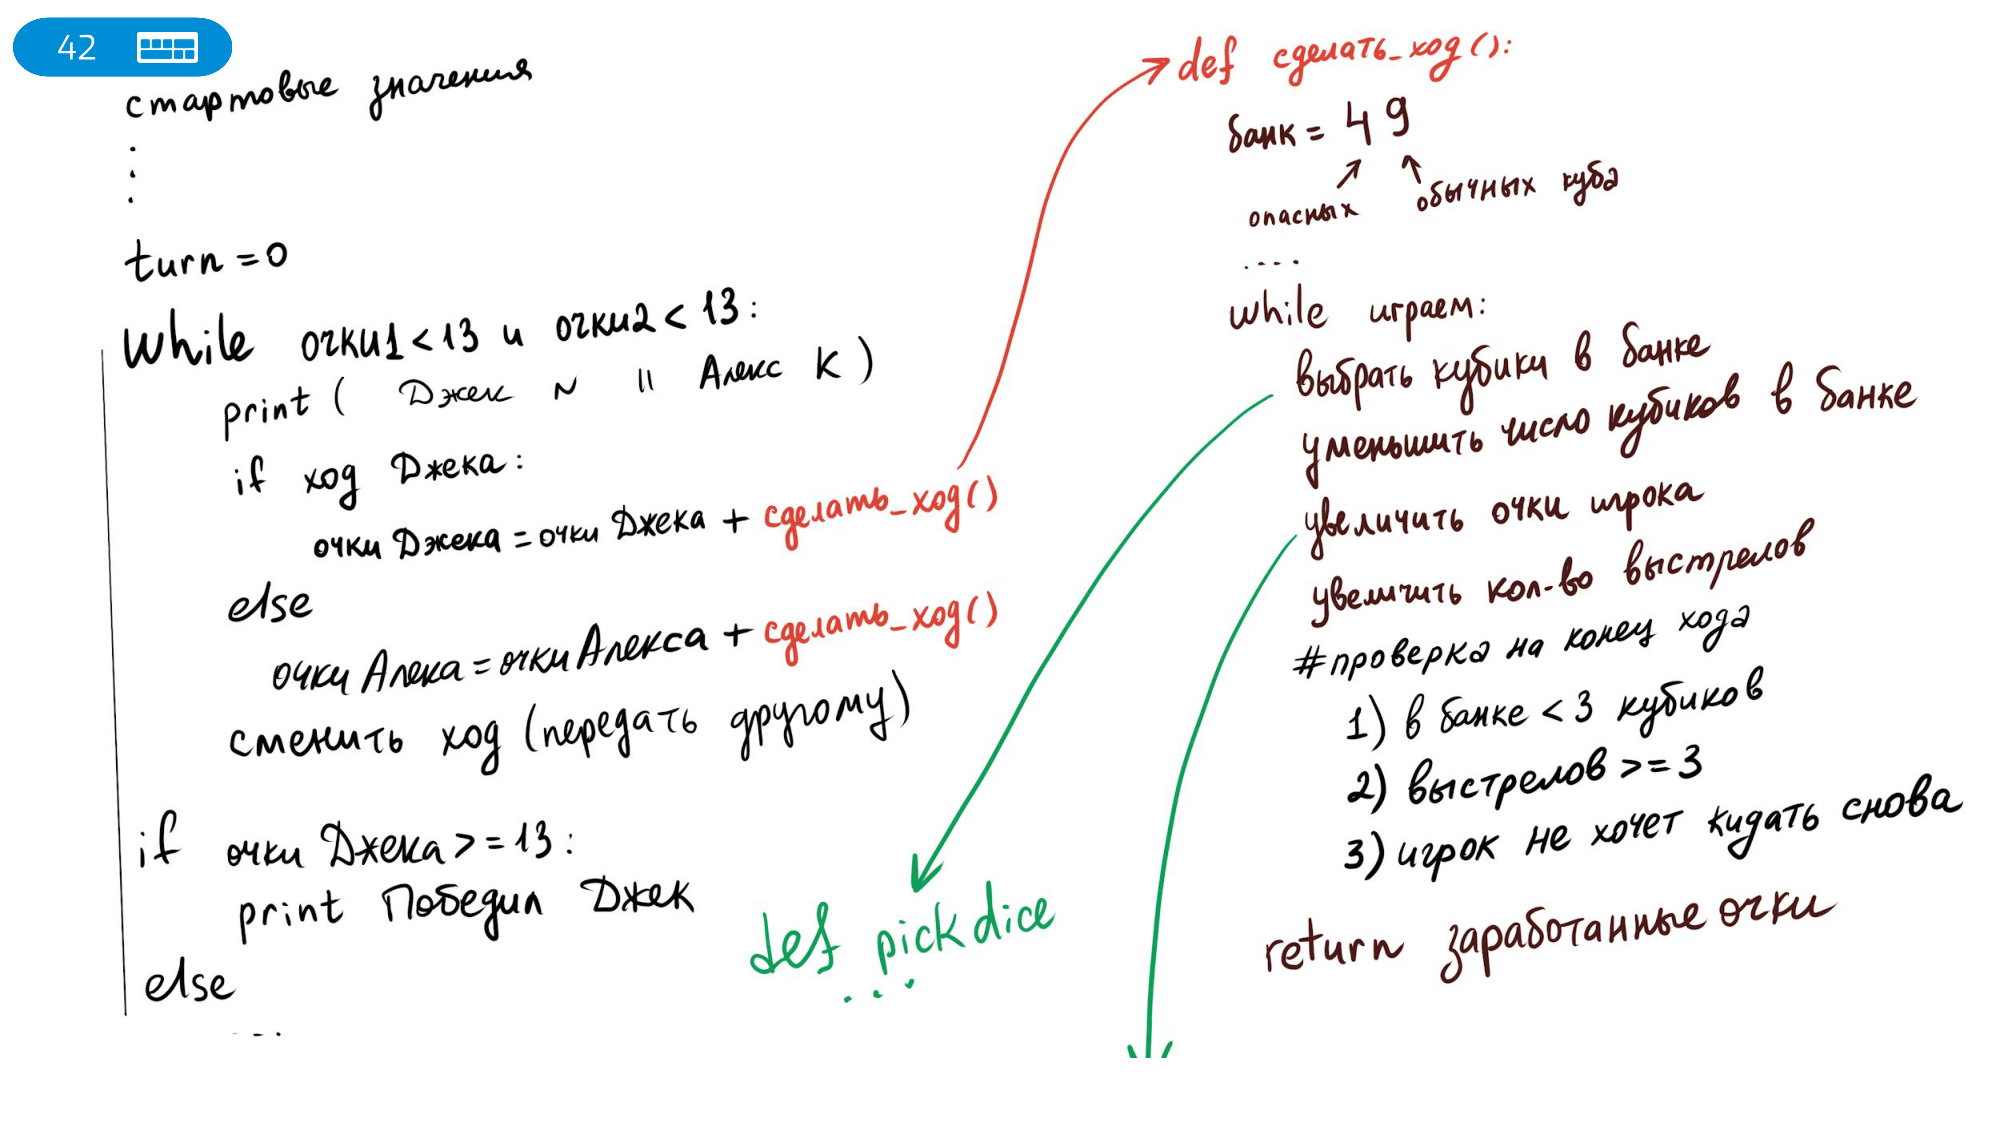 42
стартовые значения
.
.
.
turn = 0
while очки1 < 13 и очки2 < 13:
print ( Джек N || Алекс K )
if ход Джека:
очки Джека = очки Джека + сделать_ход()
else
очки Алека = очки Алекса + сделать_ход()
сменить ход (передать другому)
if очки Джека >= 13:
print Победил Джек
else
...
def pick dice
...
def сделать_ход():
банк = 4 9
опасных обычных куба
....
while играем:
выбрать кубики в банке
уменьшить число кубиков в банке
увеличить очки игрока
увеличить кол-во выстрелов
#проверка на конец хода
1) в банке < 3 кубиков
2) выстрелов >= 3
3) игрок не хочет кидать снова
return заработанные очки